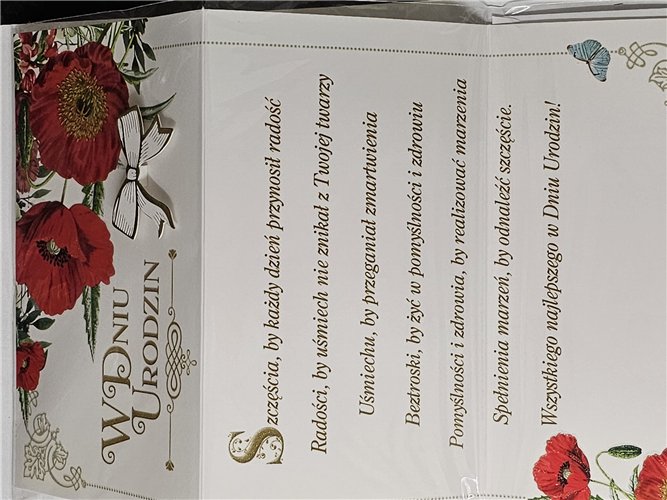 W Dniu
Urodzin
Szczęścia, by każdy dzień przynosił radość
Radości, by uśmiech nie znikał z Twojej twarzy
Uśmiechu, by przeganiał zmartwienia
Beztroski, by żyć w pomyślności i zdrowiu
Pomyślności i zdrowia, by realizować marzenia
Spełnienia marzeń, by odnaleźć szczęście.
Wszystkiego najlepszego w Dniu Urodzin!